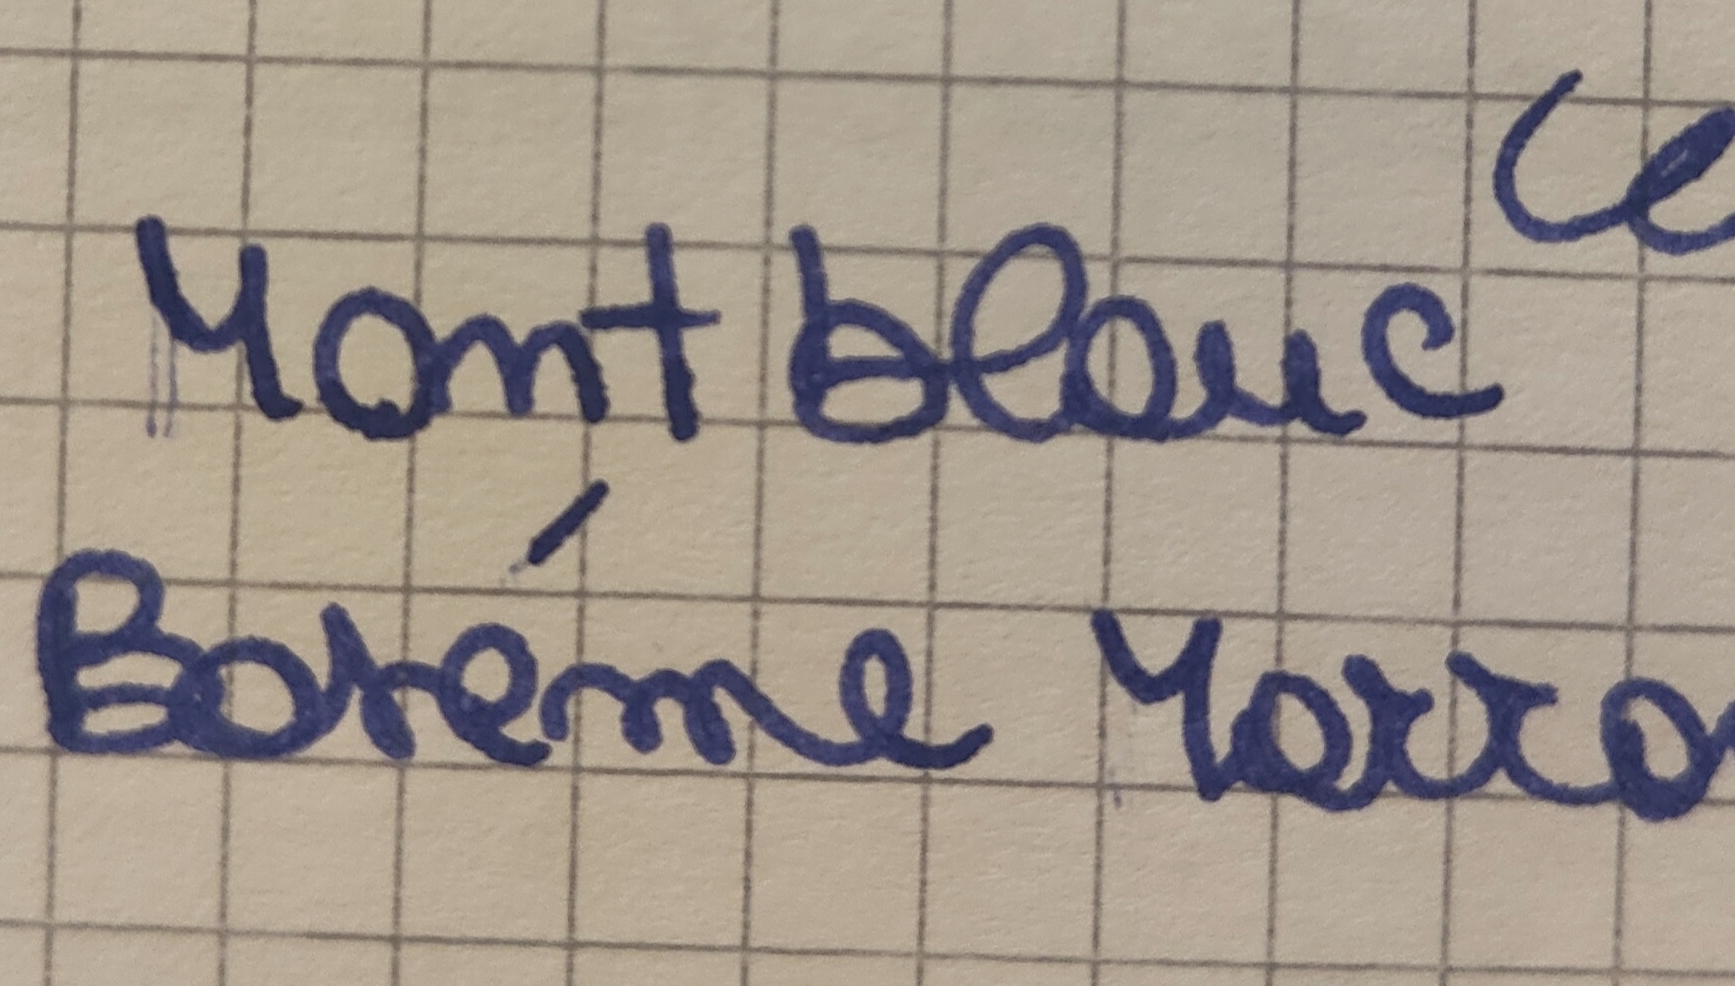 Montblanc
Baréme Marra